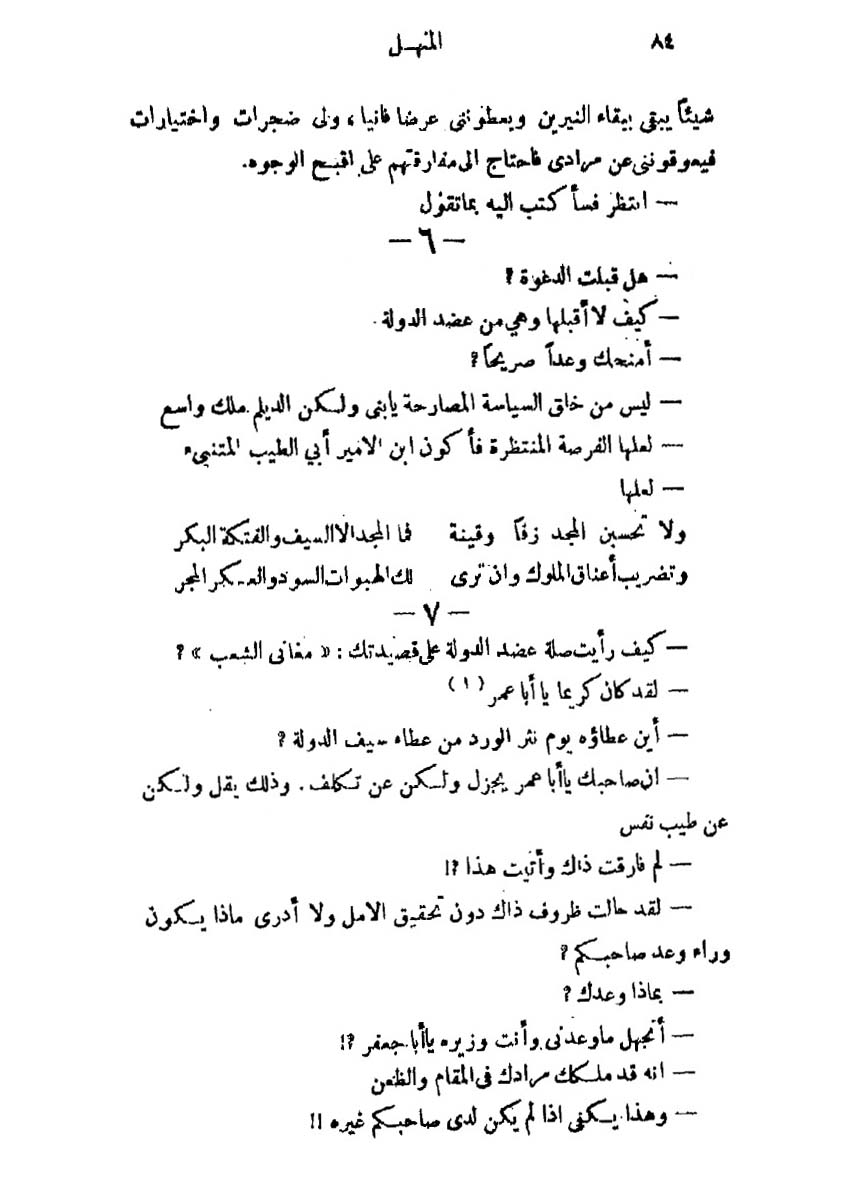 ٨٤ المنهل
شيئاً يبقى ببقاء النيرين ويعطونني عرضا فانيا، ولى ضجرات واختيارات
فيعوقونني عن مرادى فاحتاج الى مفارقتهم على اقبح الوجوه.
— انتظر فسأكتب اليه بما تقول
— ٦ —
— هل قبلت الدعوة ؟
— كيف لا أقبلها وهي من عضد الدولة .
— أمنحك وعداً صريحاً ؟
— ليس من خلق السياسة المصارحة يابنى ولكن الديلم ملك واسع
— لعلها الفرصة المنتظرة فأكون ابن الامير أبي الطيب المتنبيء
— لعلها
ولا تحسبن المجد زقاً وقينة فما المجد الا السيف والفتكة البكر
وتضريب أعناق الملوك وان ترى لك الهبوات السود والعسكر المجر
— ٧ —
— كيف رأيت صلة عضد الدولة على قصيدتك : « مغانى الشعب » ؟
— لقد كان كريما يا أبا عمر (١)
— أين عطاؤه يوم نثر الورد من عطاء سيف الدولة ؟
— ان صاحبك ياأبا عمر يجزل ولكن عن تكلف . وذلك يقل ولكن
عن طيب نفس
— لم فارقت ذاك وأتيت هذا ؟!
— لقد حالت ظروف ذاك دون تحقيق الامل ولا أدرى ماذا يكون
وراء وعد صاحبكم ؟
— بماذا وعدك ؟
— أتجهل ماوعدنى وأنت وزيره ياأبا جعفر ؟!
— انه قد ملكك مرادك فى المقام والظعن
— وهذا يكفى اذا لم يكن لدى صاحبكم غيره !!